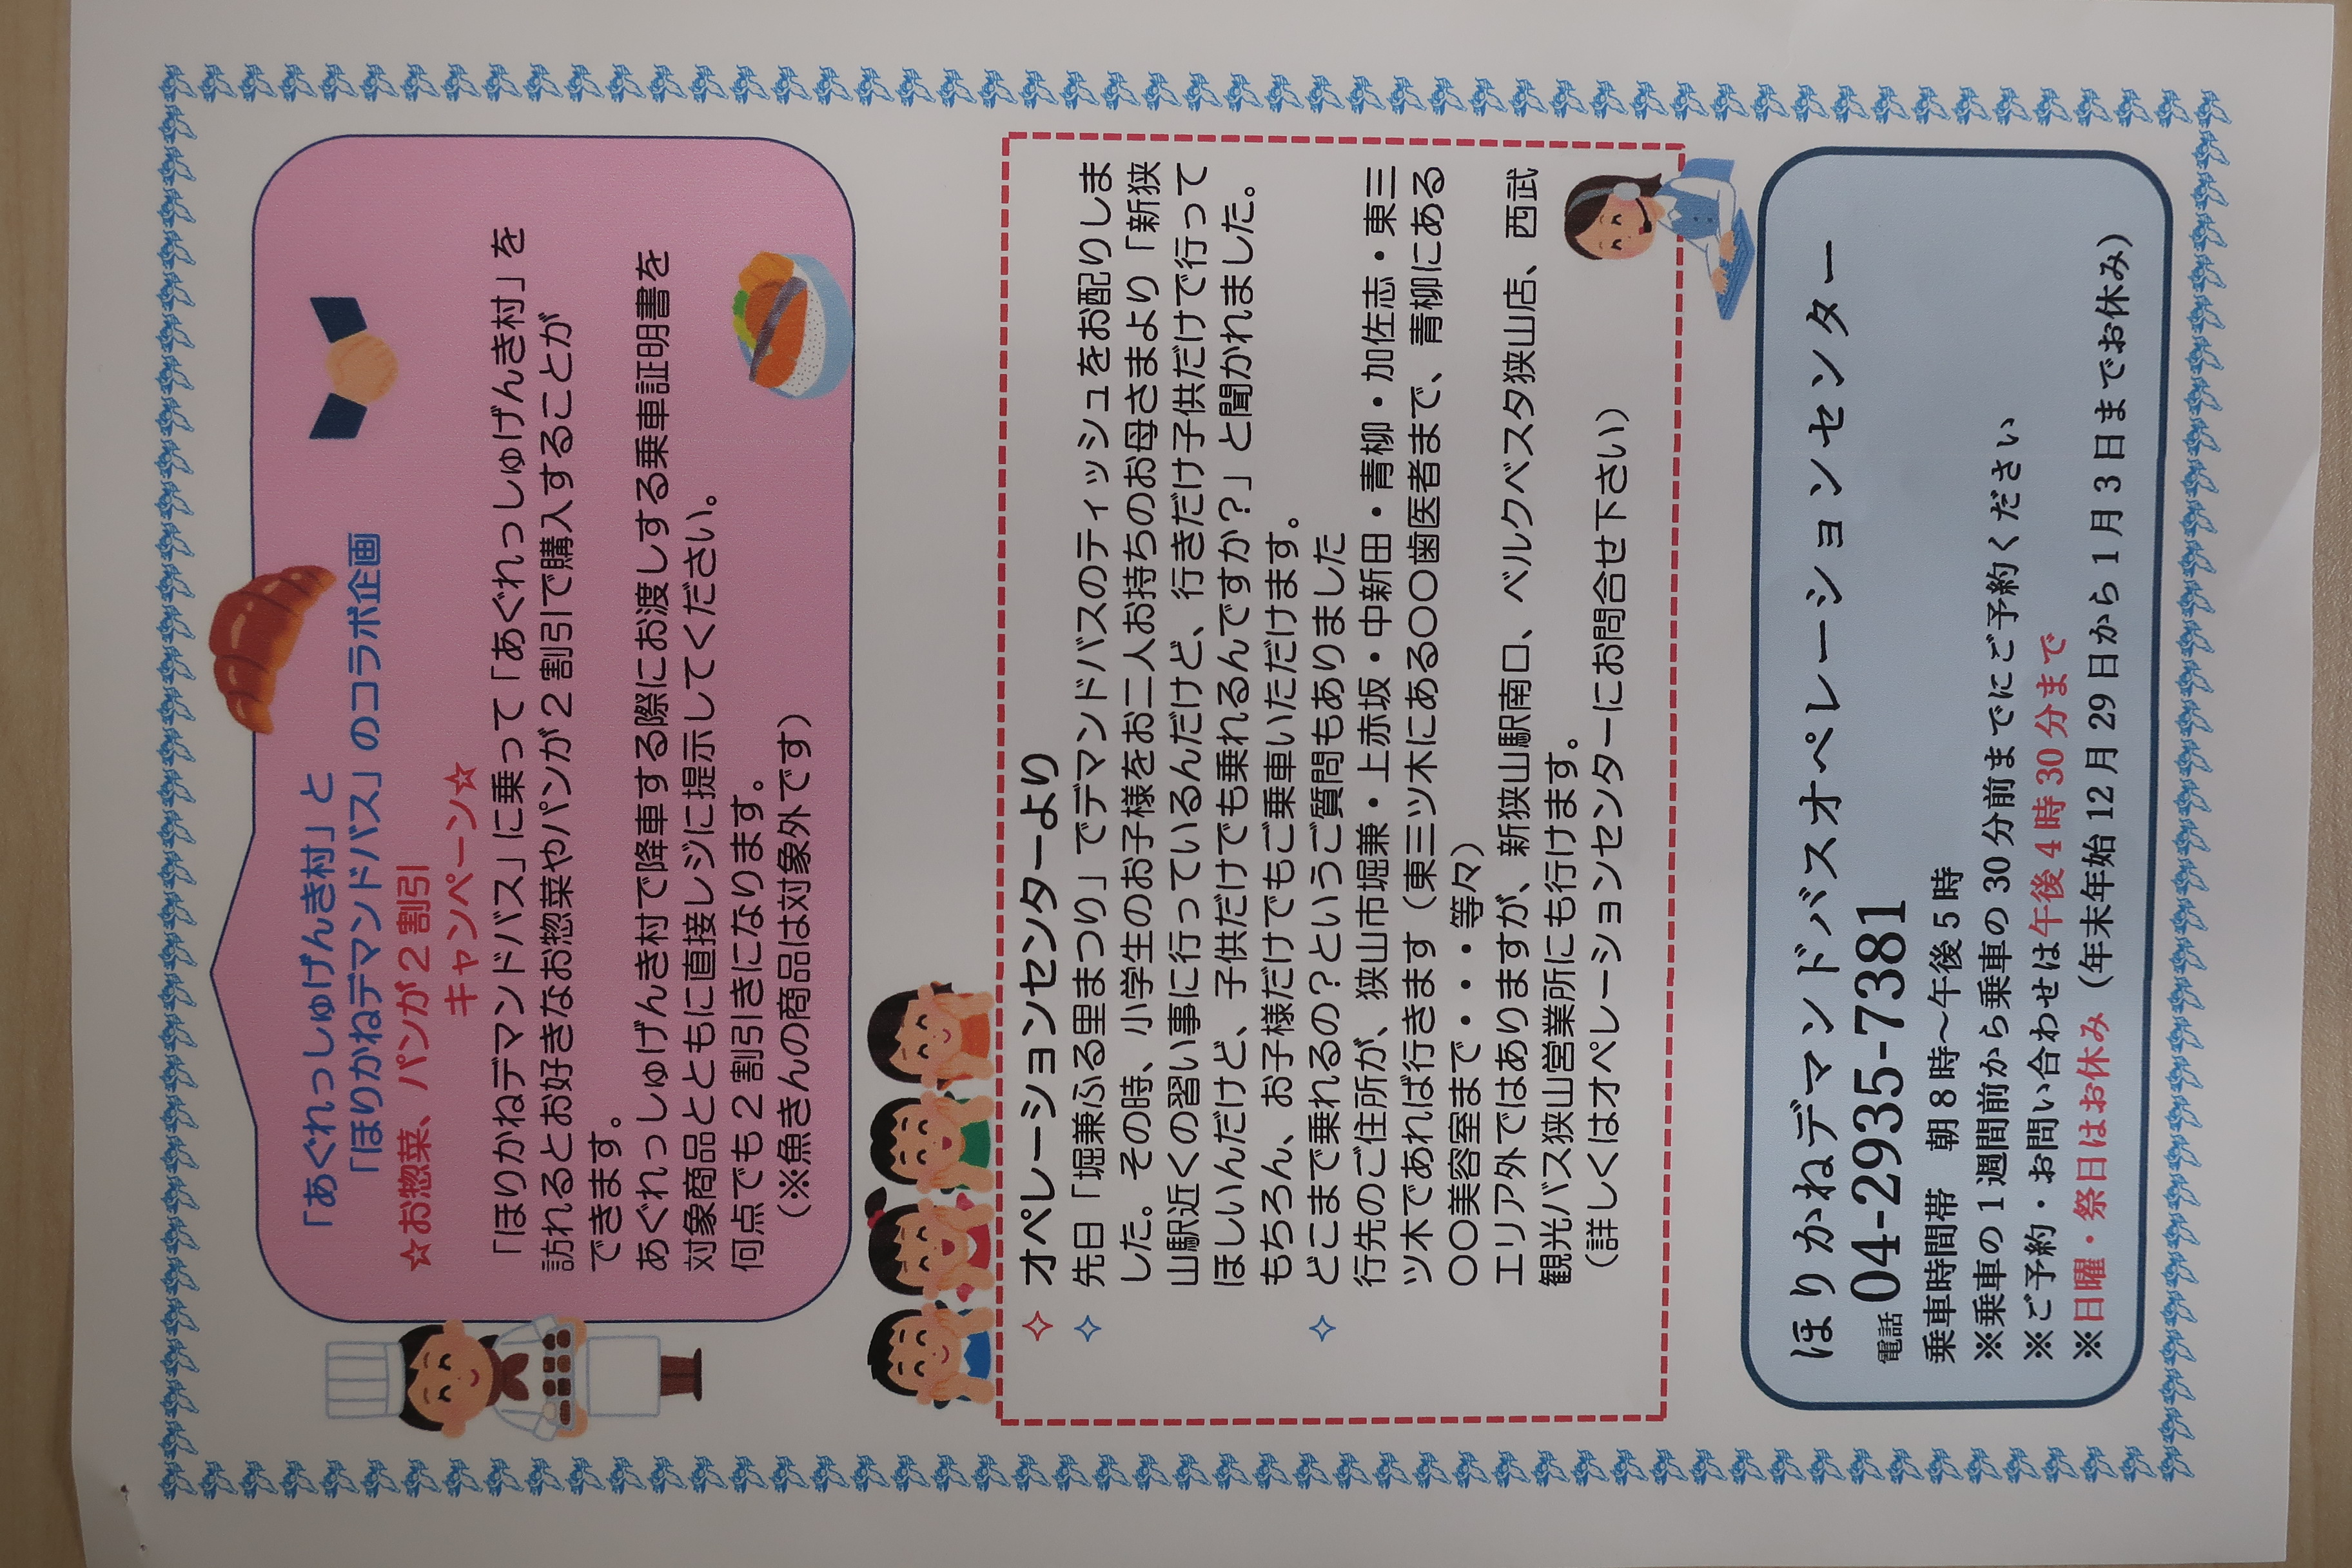 「あぐれっしゅげんき村」と
「ほりかねデマンドバス」のコラボ企画
☆お惣菜、パンが２割引
キャンペーン☆
「ほりかねデマンドバス」に乗って「あぐれっしゅげんき村」を
訪れるとお好きなお惣菜やパンが２割引で購入することが
できます。
あぐれっしゅげんき村で降車する際にお渡しする乗車証明書を
対象商品とともに直接レジに提示してください。
何点でも２割引きになります。
（※魚きんの商品は対象外です）
✧オペレーションセンターより
✧先日「堀兼ふる里まつり」でデマンドバスのティッシュをお配りしま
した。その時、小学生のお子様をお二人お持ちのお母さまより「新狭
山駅近くの習い事に行っているんだけど、行きだけ子供だけで行って
ほしいんだけど、子供だけでも乗れるんですか？」と聞かれました。
もちろん、お子様だけでもご乗車いただけます。
✧どこまで乗れるの？というご質問もありました
行先のご住所が、狭山市堀兼・上赤坂・中新田・青柳・加佐志・東三
ツ木であれば行きます（東三ツ木にある〇〇歯医者まで、青柳にある
〇〇美容室まで・・・等々）
エリア外ではありますが、新狭山駅南口、ベルクベスタ狭山店、西武
観光バス狭山営業所にも行けます。
（詳しくはオペレーションセンターにお問合せ下さい）
ほりかねデマンドバスオペレーションセンター
電話04-2935-7381
乗車時間帯　朝８時～午後５時
※乗車の１週間前から乗車の30分前までにご予約ください
※ご予約・お問い合わせは午後４時30分まで
※日曜・祭日はお休み（年末年始12月29日から１月３日までお休み）